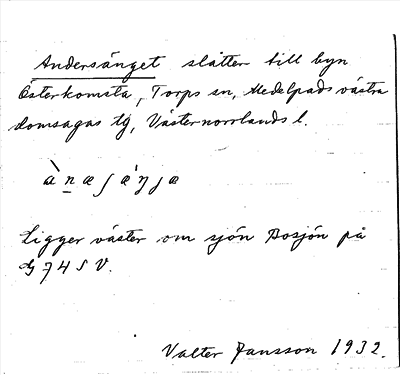 Andersänget slåtter till byn
Österkomsta, Torps sn, Medelpads västra
domsagas tg, Västernorrlands l.
Ligger väster om sjön Bosjön på
G 74 S V.
Valter Jansson 1932.